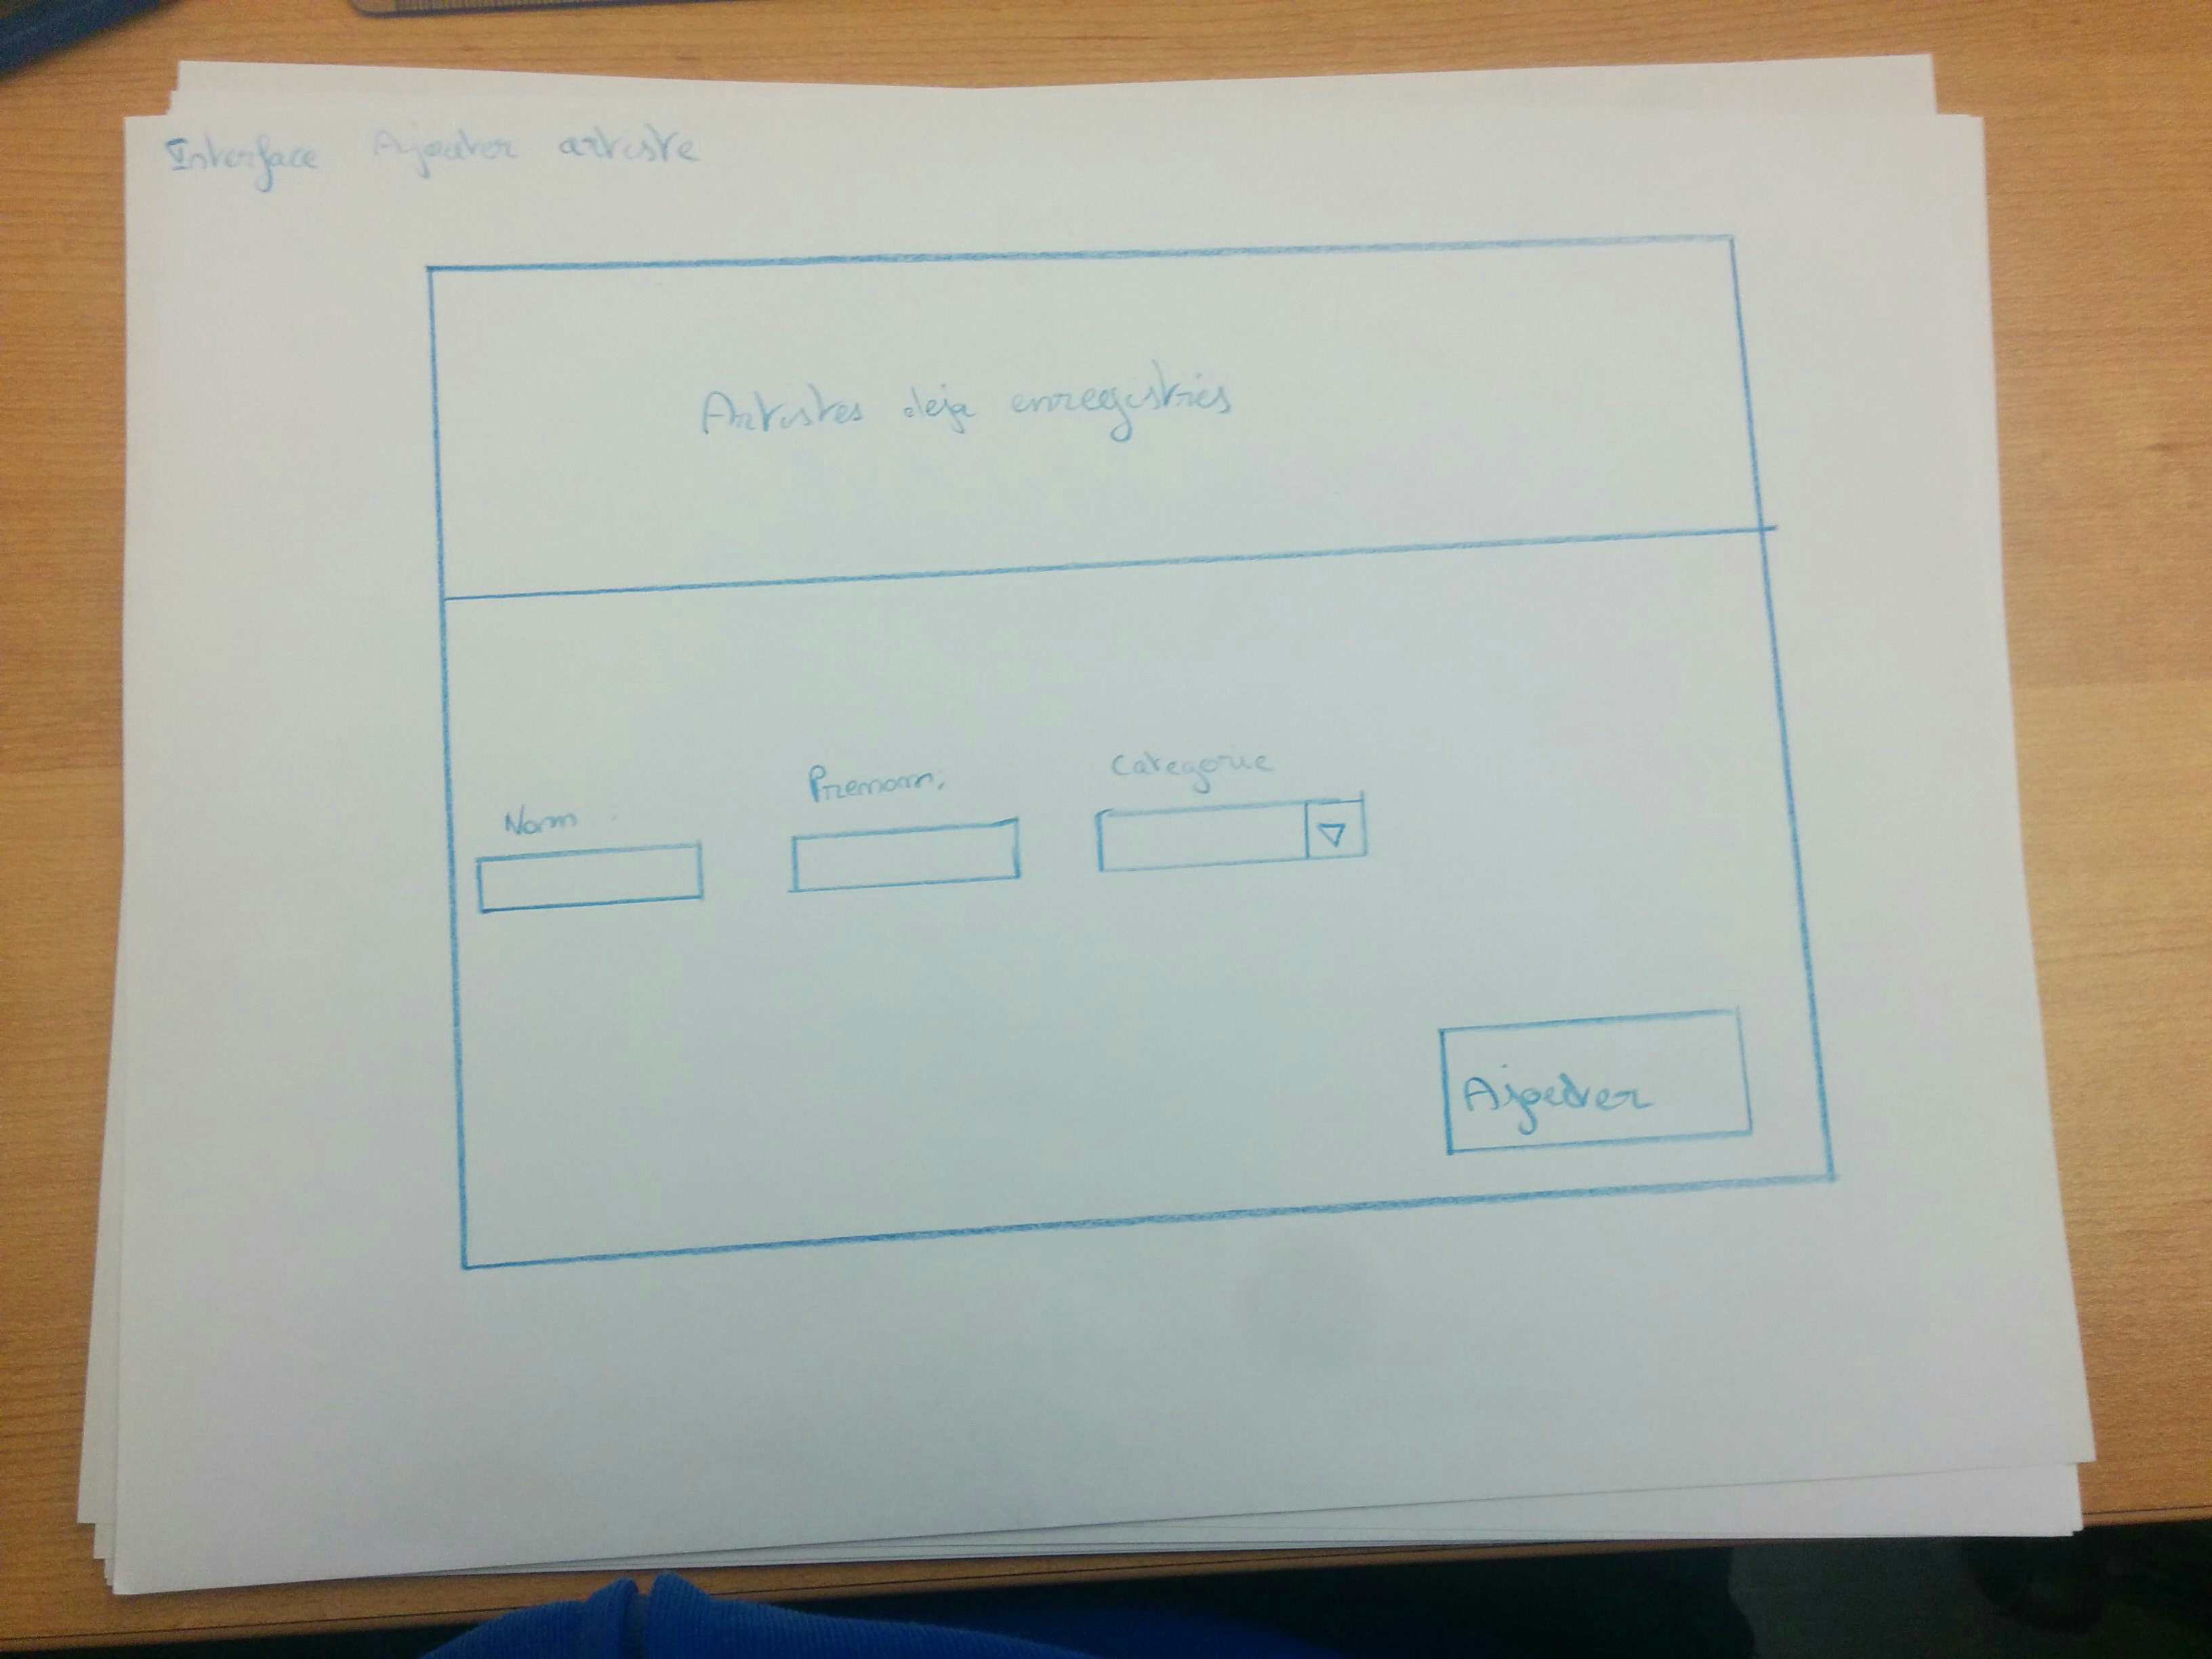 Interface Ajouter artiste
Artistes deja enregistrés
Nom
Prenom.
Categorie
Ajouter